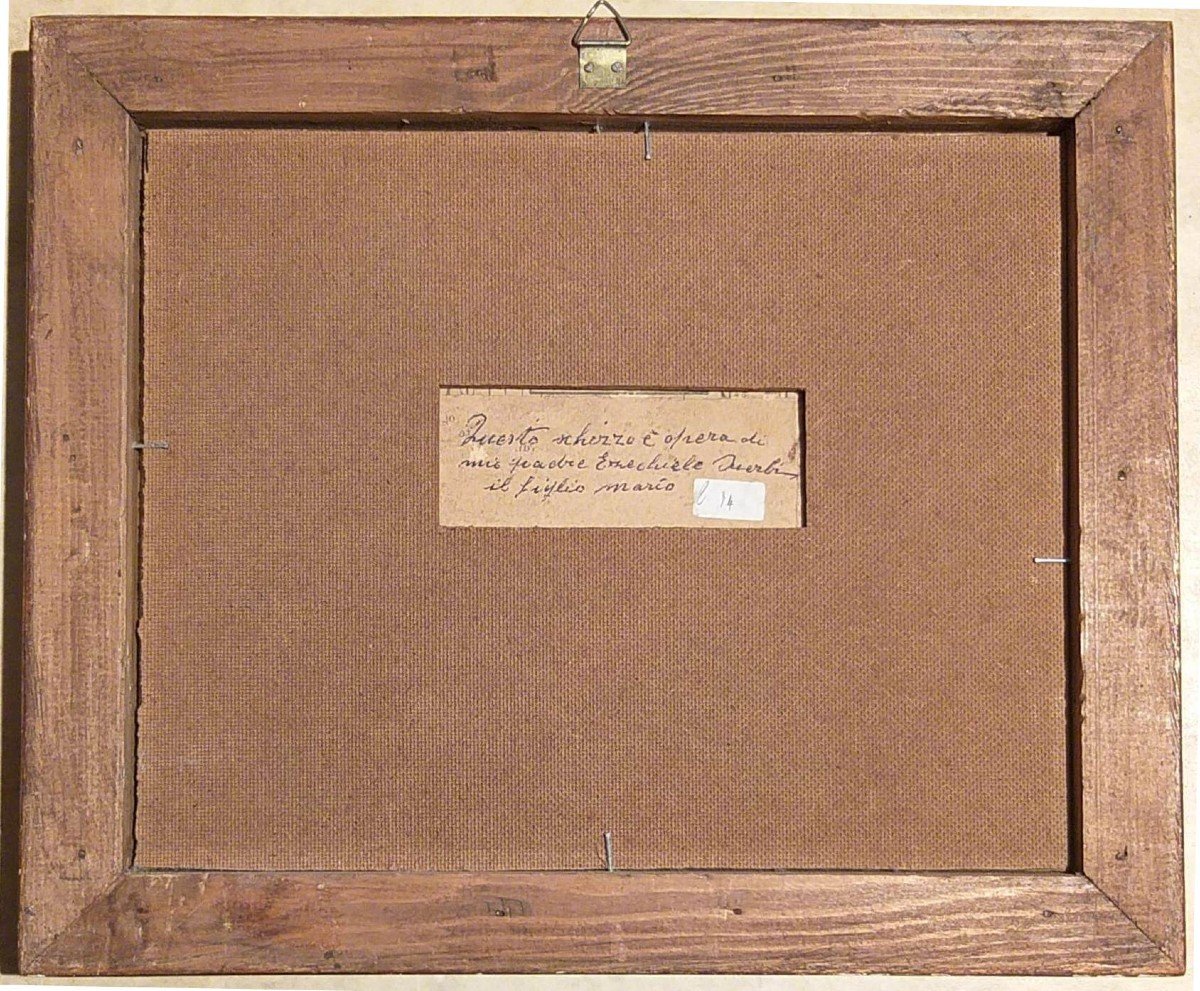 Questo schizzo è opera di
mio padre Ezechiele Guerbi
il figlio mario
14